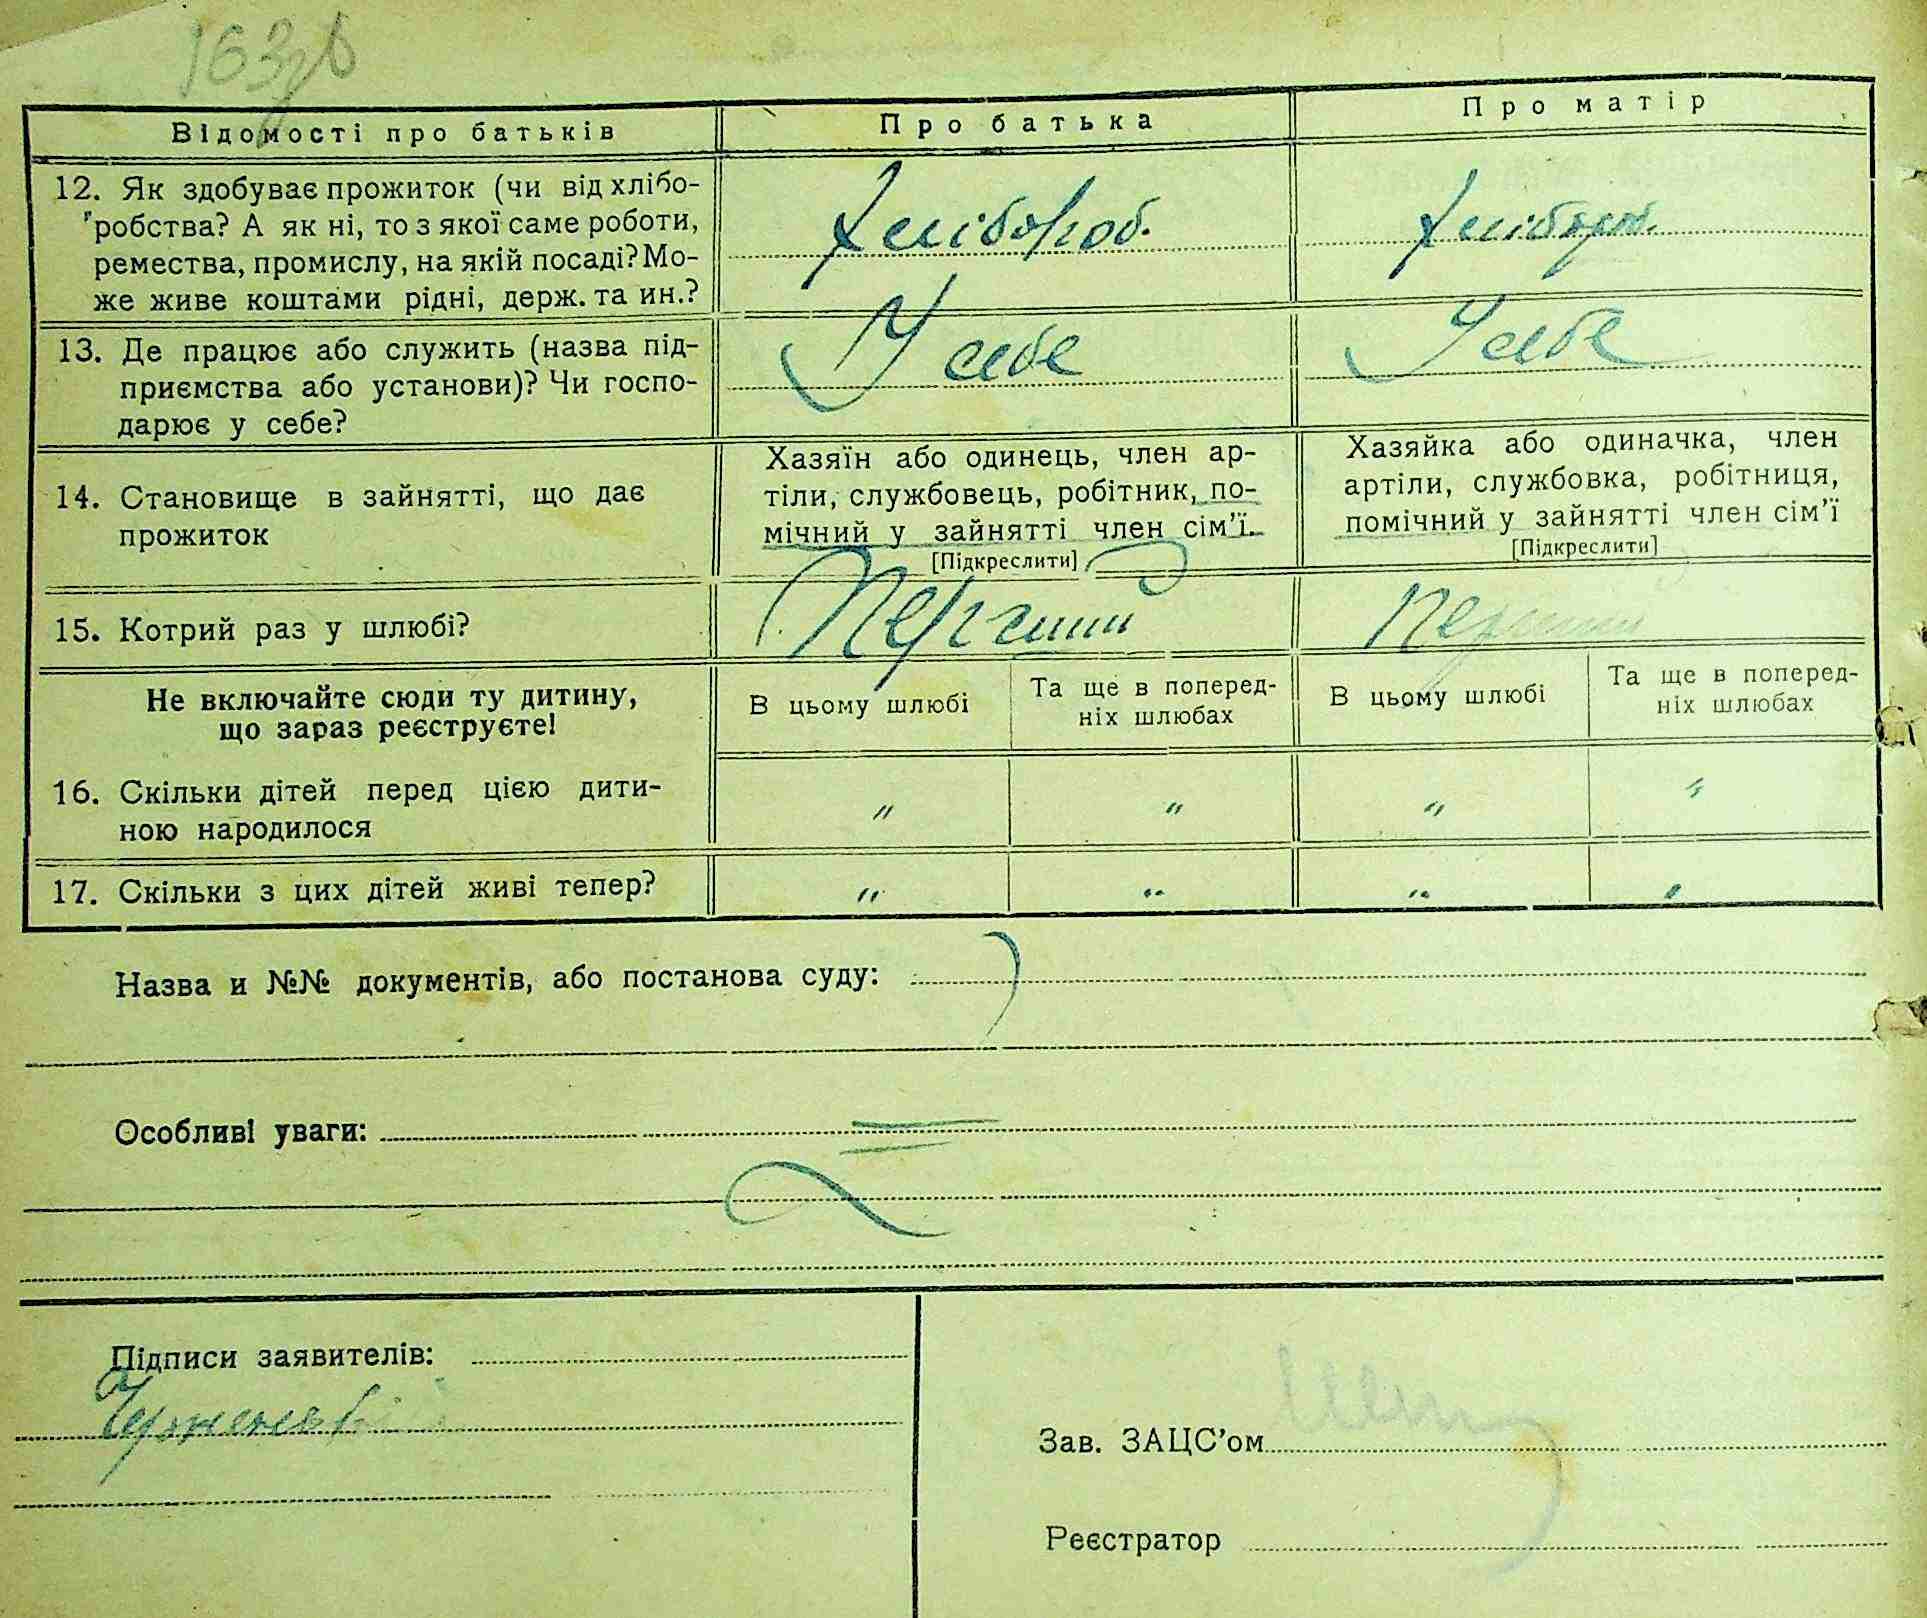 163зв
Відомості про батьків
Про батька
Про матір
12. Як здобуває прожиток (чи від хлібо-
робства? А як ні, то з якої саме роботи,
ремества, промислу, на якій посаді? Мо-
же живе коштами рідні, держ. та ин.?
Хлібороб.
Хлібороб.
13. Де працює або служить (назва під-
приємства або установи)? Чи госпо-
дарює у себе?
У себе
У себе
14. Становище в зайнятті, що дає
прожиток
Хазяїн або одинець, член ар-
тіли, службовець, робітник, по-
мічний у зайнятті член сім'ї.
[Підкреслити]
Хазяйка або одиначка, член
артіли, службовка, робітниця,
помічний у зайнятті член сім'ї
[Підкреслити]
15. Котрий раз у шлюбі?
Перший
Перший
Не включайте сюди ту дитину,
що зараз реєструєте!
В цьому шлюбі
Та ще в поперед-
ніх шлюбах
В цьому шлюбі
Та ще в поперед-
ніх шлюбах
16. Скільки дітей перед цією дити-
ною народилося
" " " "
17. Скільки з цих дітей живі тепер?
" " " "
Назва и №№ документів, або постанова суду:
Особливі уваги:
Підписи заявителів:
Зав. ЗАЦС'ом
Реєстратор